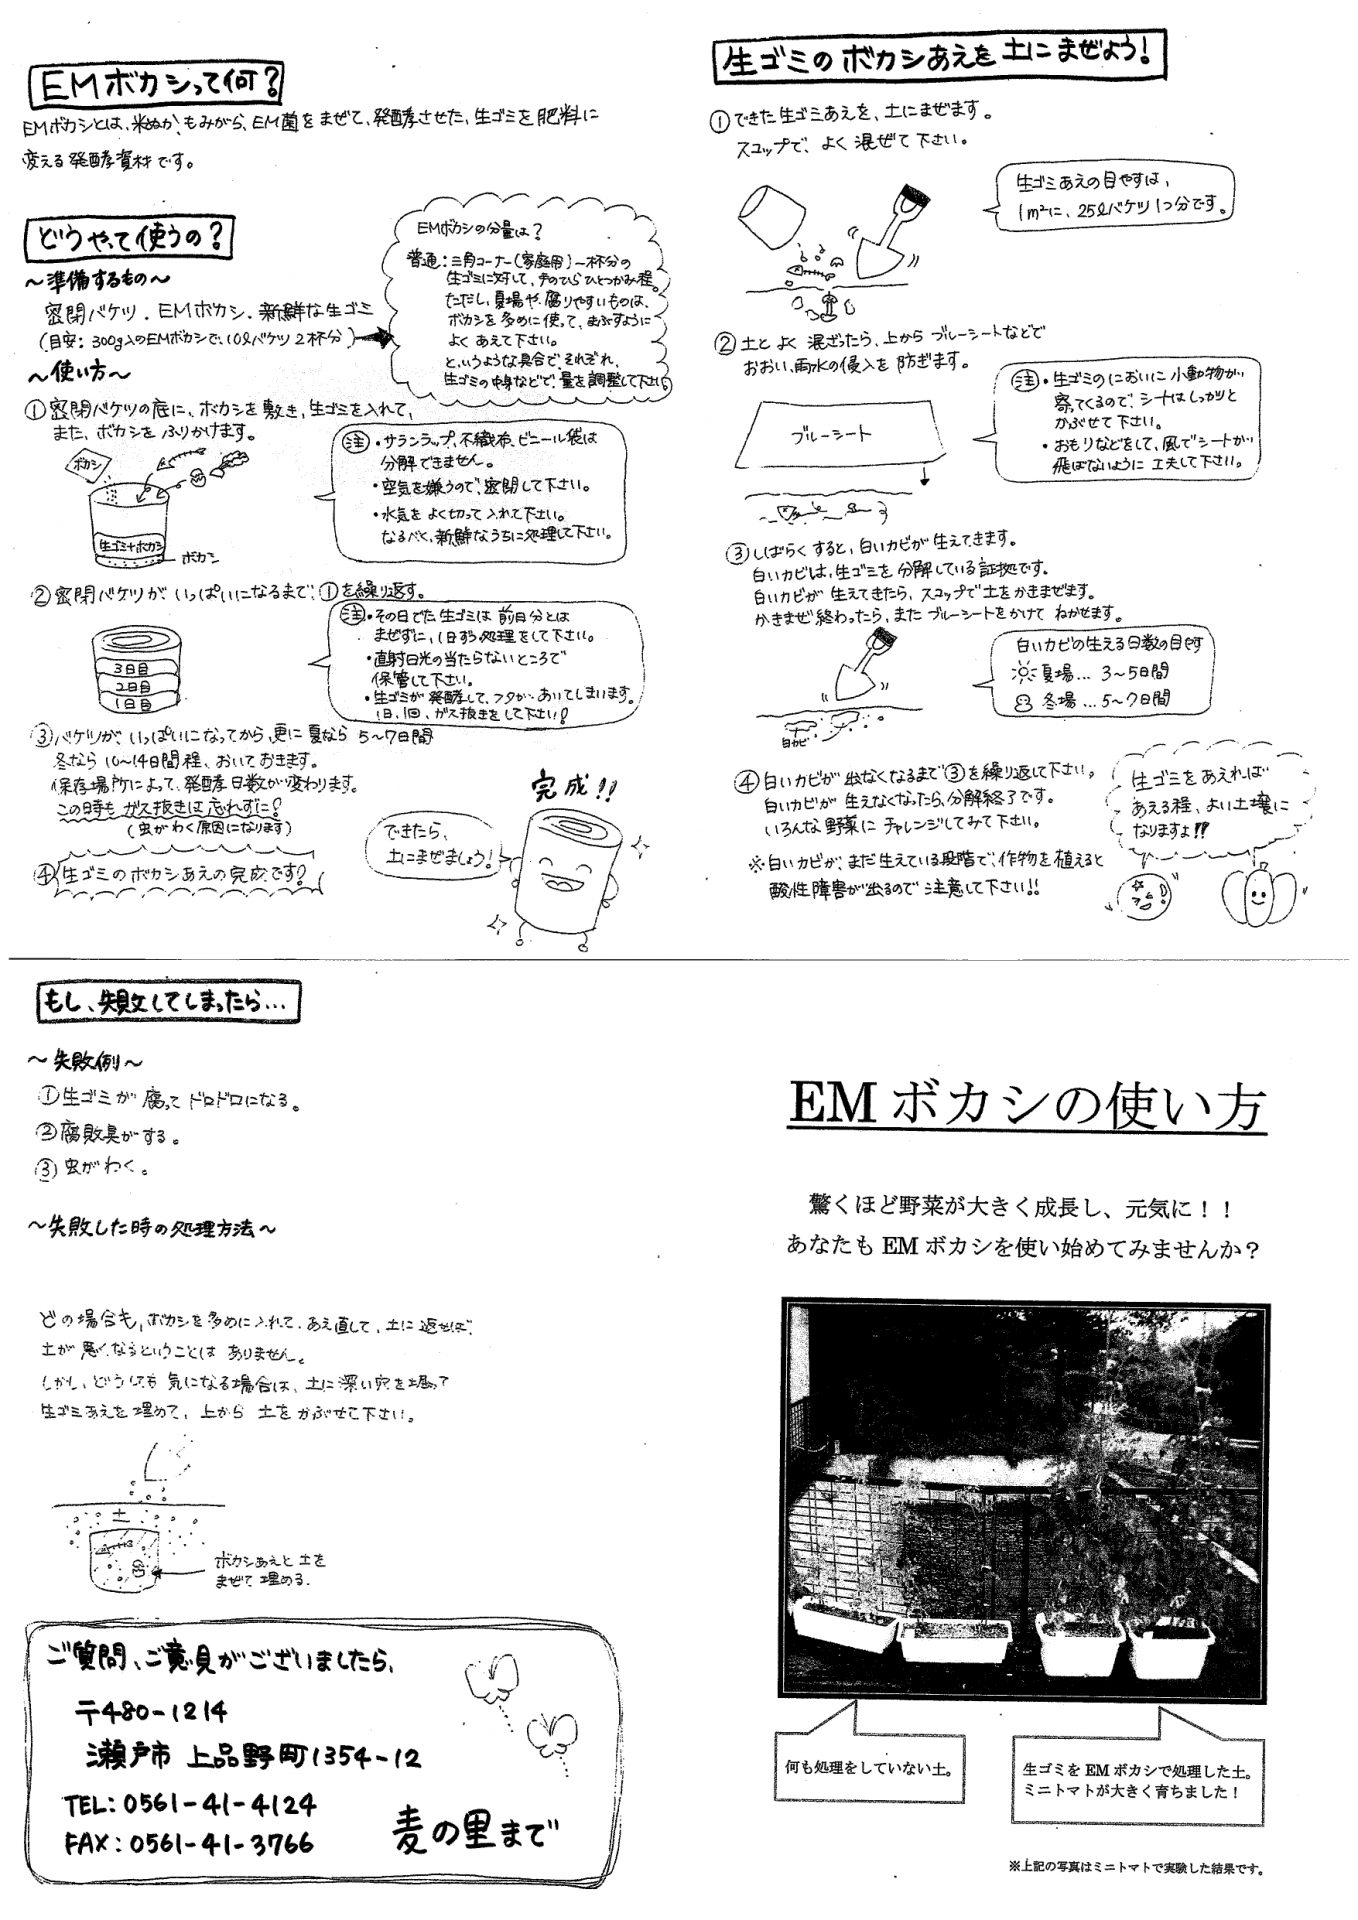 EMボカシって何?
EMボカシとは、米ぬか、もみがら、EM菌をまぜて、発酵させた、生ゴミを肥料に
変える発酵資材です。
どうやって使うの?
～準備するもの～
密閉バケツ、EMボカシ、新鮮な生ゴミ
(目安：300g入のEMボカシで、10ℓバケツ2杯分)
EMボカシの分量は?
普通：三角コーナー(家庭用)一杯分の
生ゴミに対して、手のひらひとつかみ程。
ただし、夏場や、腐りやすいものは、
ボカシを多めに使って、まぶすように
よくあえて下さい。
というような具合で、それぞれ、
生ゴミの中身などで、量を調整して下さい
～使い方～
①密閉バケツの底に、ボカシを敷き、生ゴミを入れて、
また、ボカシをふりかけます。
ボカシ
生ゴミ+ボカシ
ボカシ
注・サランラップ、不織布、ビニール袋は
分解できません。
・空気を嫌うので、密閉して下さい。
・水気をよく切って入れて下さい。
なるべく、新鮮なうちに処理して下さい。
②密閉バケツが、いっぱいになるまで、①を繰り返す。
3日目
2日目
1日目
注・その日でた生ゴミは前日分とは
まぜずに、1日ずつ処理をして下さい。
・直射日光の当たらないところで
保管して下さい。
・生ゴミが発酵して、フタが、あいてしまいます。
1日、1回、ガス抜きをして下さい!
③バケツが、いっぱいになってから、更に夏なら5～7日間
冬なら10～14日間程、おいておきます。
保存場所によって、発酵日数が変わります。
この時も、ガス抜きは忘れずに!
(虫がわく原因になります)
④生ゴミのボカシあえの完成です!
完成!!
できたら、
土にまぜましょう!
生ゴミのボカシあえを土にまぜよう!
①できた生ゴミあえを、土にまぜます。
スコップで、よく混ぜて下さい。
生ゴミあえの目やすは、
1m²に、25ℓバケツ1つ分です。
②土とよく混ざったら、上からブルーシートなどで
おおい、雨水の侵入を防ぎます。
ブルーシート
注・生ゴミのにおいに小動物が
寄ってくるので、シートはしっかりと
かぶせて下さい。
・おもりなどをして、風でシートが
飛ばないように工夫して下さい。
③しばらくすると、白いカビが生えてきます。
白いカビは、生ゴミを分解している証拠です。
白いカビが生えてきたら、スコップで土をかきまぜます。
かきまぜ終わったら、またブルーシートをかけてねかせます。
白カビ
白いカビの生える日数の目やす
夏場…3～5日間
冬場…5～7日間
④白いカビが出なくなるまで③を繰り返して下さい。
白いカビが生えなくなったら、分解終了です。
いろんな野菜にチャレンジしてみて下さい。
※白いカビが、まだ生えている段階で、作物を植えると
酸性障害が出るので注意して下さい!!
生ゴミをあえれば
あえる程、よい土壌に
なりますよ!!
もし、失敗してしまったら…
～失敗例～
①生ゴミが腐ってドロドロになる。
②腐敗臭がする。
③虫がわく。
～失敗した時の処理方法～
どの場合も、ボカシを多めに入れて、あえ直して、土に返せば、
土が悪くなるということはありません。
しかし、どうしても気になる場合は、土に深い穴を掘って
生ゴミあえを埋めて、上から土をかぶせて下さい。
土
ボカシあえと土を
まぜて埋める.
ご質問、ご意見がございましたら、
〒480-1214
瀬戸市上品野町1354-12
TEL：0561-41-4124
FAX：0561-41-3766
麦の里まで
EMボカシの使い方
驚くほど野菜が大きく成長し、元気に！！
あなたもEMボカシを使い始めてみませんか？
何も処理をしていない土。
生ゴミをEMボカシで処理した土。
ミニトマトが大きく育ちました！
※上記の写真はミニトマトで実験した結果です。